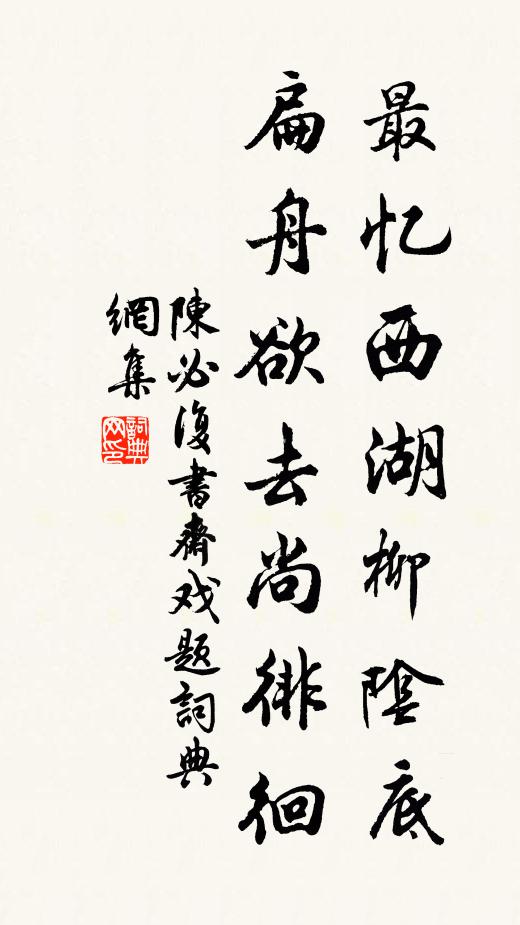 最忆西湖柳陰底
扁舟欲去尚徘徊
陳必復書齋戏题詞典
網集
詞典網印